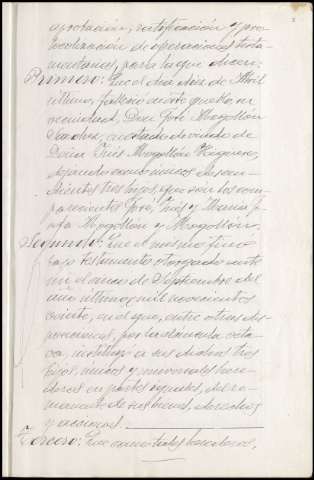 aprobación, ratificación y pro-
tocolización de operaciones testa-
mentarias, para la que dicen:
Primero: Que el día diez de Abril
último, falleció en este pueblo, su
vecindad, Don José Mogollón
Sánchez, en estado de viudo de
Doña Inés Mogollón
dejando como únicos descen-
dientes tres hijos, que son los com-
parecientes José, Inés y María J
Mogollón y Mogollón.
Segundo: Que el mismo finó
bajo testamento otorgado ante
mí el once de Septiembre del
año último mil novecientos
veinte, en el que, entre otras dis-
posiciones, por la cláusula octa-
va, instituyó a sus dichos tres
hijos, únicos y universales here-
deros en partes iguales, del re-
manente de sus bienes, derechos
y acciones.
Tercero: Que como tales herederos,